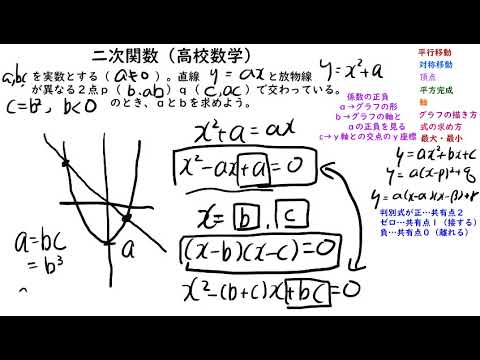 二次関数（高校数学）
a,bcを実数とする（a≠0）。直線 y=axと放物線 y=x²+a
が異なる２点p（b.ab）q（c,ac）で交わっている。
c=b², b<0 のとき、aとbを求めよう。
平行移動
対称移動
頂点
平方完成
軸
グラフの描き方
式の求め方
最大・最小
係数の正負
a→グラフの形
b→グラフの軸と
aの正負を見る
c→y軸との交点のy座標
y=ax²+bx+c
y=a(x-p)²+q
y=a(x-α)(x-β)+r
判別式が正…共有点２
ゼロ…共有点１（接する）
負…共有点０（離れる）
x²+a=ax
x²-ax+a=0
x=b,c
(x-b)(x-c)=0
x²-(b+c)x+bc=0
a
a=bc
=b³